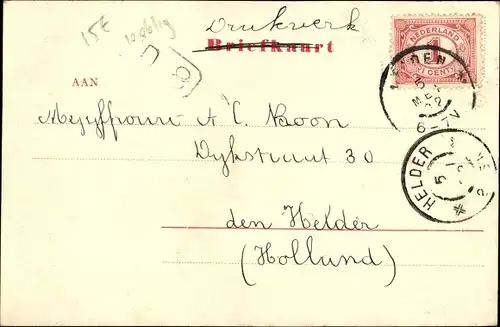 15€
Drukwerk
Briefkaart
NEDERLAND
1 CENT
AAN
Mejuffrouw A C. Boon
Dijkstraat 30
den Helder
(Holland)
HELDER
5